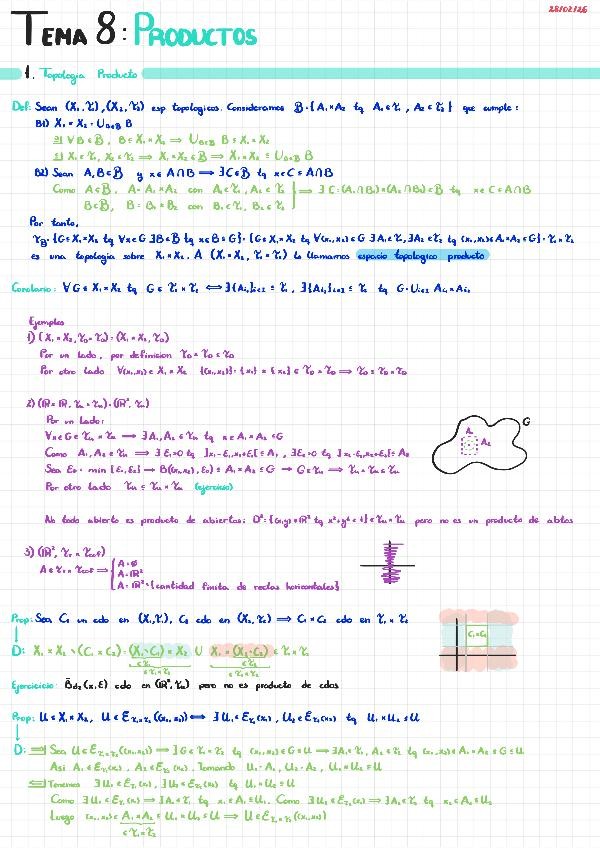 28/02/26
TEMA 8: PRODUCTOS
1. Topología Producto
Def: Sean (X₁, τ₁), (X₂, τ₂) esp. topologicos. Consideramos B = {A₁×A₂ tq A₁∈τ₁, A₂∈τ₂} que cumple:
B1) X₁×X₂ = U_{B∈B} B
⊇) ∀B∈B, B⊆X₁×X₂ ⟹ U_{B∈B} B ⊆ X₁×X₂
⊆) X₁∈τ₁, X₂∈τ₂ ⟹ X₁×X₂∈B ⟹ X₁×X₂ ⊆ U_{B∈B} B
B2) Sean A,B∈B y x∈A∩B ⟹ ∃C∈B tq x∈C⊆A∩B
Como A∈B, A=A₁×A₂ con A₁∈τ₁, A₂∈τ₂
B∈B, B=B₁×B₂ con B₁∈τ₁, B₂∈τ₂ ⟹ ∃C=(A₁∩B₁)×(A₂∩B₂)∈B tq x∈C⊆A∩B
Por tanto,
τ_B={G⊆X₁×X₂ tq ∀x∈G ∃B∈B tq x∈B⊆G}={G⊆X₁×X₂ tq ∀(x₁,x₂)∈G ∃A₁∈τ₁, ∃A₂∈τ₂ tq (x₁,x₂)∈A₁×A₂⊆G}=τ₁×τ₂
es una topologia sobre X₁×X₂. A (X₁×X₂, τ₁×τ₂) la llamamos espacio topologico producto
Corolario: ∀G⊆X₁×X₂ tq G∈τ₁×τ₂ ⟺ ∃{A₁ᵢ}ᵢ∈I ⊆ τ₁, ∃{A₂ᵢ}ᵢ∈I ⊆ τ₂ tq G=Uᵢ∈I A₁ᵢ×A₂ᵢ
Ejemplos
1) (X₁×X₂, τ_D×τ_D)=(X₁×X₂, τ_D)
Por un lado, por definicion τ_D×τ_D⊆τ_D
Por otro lado ∀(x₁,x₂)∈X₁×X₂ {(x₁,x₂)}={x₁}×{x₂}∈τ_D×τ_D ⟹ τ_D=τ_D×τ_D
2) (ℝ×ℝ, τᵤ×τᵤ)=(ℝ², τᵤ)
Por un lado:
∀x∈G∈τᵤ×τᵤ ⟶ ∃A₁,A₂∈τᵤ tq x∈A₁×A₂⊆G
Como A₁,A₂∈τᵤ ⟶ ∃ε₁>0 tq ]x₁-ε₁,x₁+ε₁[⊆A₁, ∃ε₂>0 tq ]x₂-ε₂,x₂+ε₂[⊆A₂
Sea ε₀=min{ε₁,ε₂} ⟶ B((x₁,x₂),ε₀)⊆A₁×A₂⊆G ⟶ G∈τᵤ ⟶ τᵤ×τᵤ⊆τᵤ
Por otro lado τᵤ⊆τᵤ×τᵤ (ejercicio)
G
A₁
A₂
No todo abierto es producto de abiertos: D²={(x,y)∈ℝ² tq x²+y²<1}∈τᵤ×τᵤ pero no es un producto de abtos
3) (ℝ², τ_T×τ_cof)
A∈τ_T×τ_cof ⟹ {A=∅
A=ℝ²
A=ℝ²\{cantidad finita de rectas horizontales}
Prop: Sea C₁ un cdo en (X₁,τ₁), C₂ cdo en (X₂,τ₂) ⟹ C₁×C₂ cdo en τ₁×τ₂
D: X₁×X₂\(C₁×C₂)=(X₁\C₁)×X₂ U X₁×(X₂\C₂)∈τ₁×τ₂
∈τ₁ ∈τ₂
∈τ₁×τ₂ ∈τ₁×τ₂
C₁×C₂
Ejercicicio: B̄_{d₂}(x,ε) cdo en (ℝ²,τᵤ) pero no es producto de cdos
Prop: U⊆X₁×X₂, U∈E_{τ₁×τ₂}((x₁,x₂)) ⟺ ∃U₁∈E_{τ₁}(x₁), U₂∈E_{τ₂}(x₂) tq U₁×U₂⊆U
D: ⟹| Sea U∈E_{τ₁×τ₂}((x₁,x₂)) ⟹ ∃G∈τ₁×τ₂ tq (x₁,x₂)∈G⊆U ⟹ ∃A₁∈τ₁, A₂∈τ₂ tq (x₁,x₂)∈A₁×A₂⊆G⊆U
Asi A₁∈E_{τ₁}(x₁), A₂∈E_{τ₂}(x₂). Tomando U₁=A₁, U₂=A₂, U₁×U₂⊆U
⟸| Tenemos ∃U₁∈E_{τ₁}(x₁), ∃U₂∈E_{τ₂}(x₂) tq U₁×U₂⊆U
Como ∃U₁∈E_{τ₁}(x₁) ⟹ ∃A₁∈τ₁ tq x₁∈A₁⊆U₁. Como ∃U₂∈E_{τ₂}(x₂) ⟹ ∃A₂∈τ₂ tq x₂∈A₂⊆U₂
Luego (x₁,x₂)∈A₁×A₂⊆U₁×U₂⊆U ⟹ U∈E_{τ₁×τ₂}((x₁,x₂))
∈τ₁×τ₂